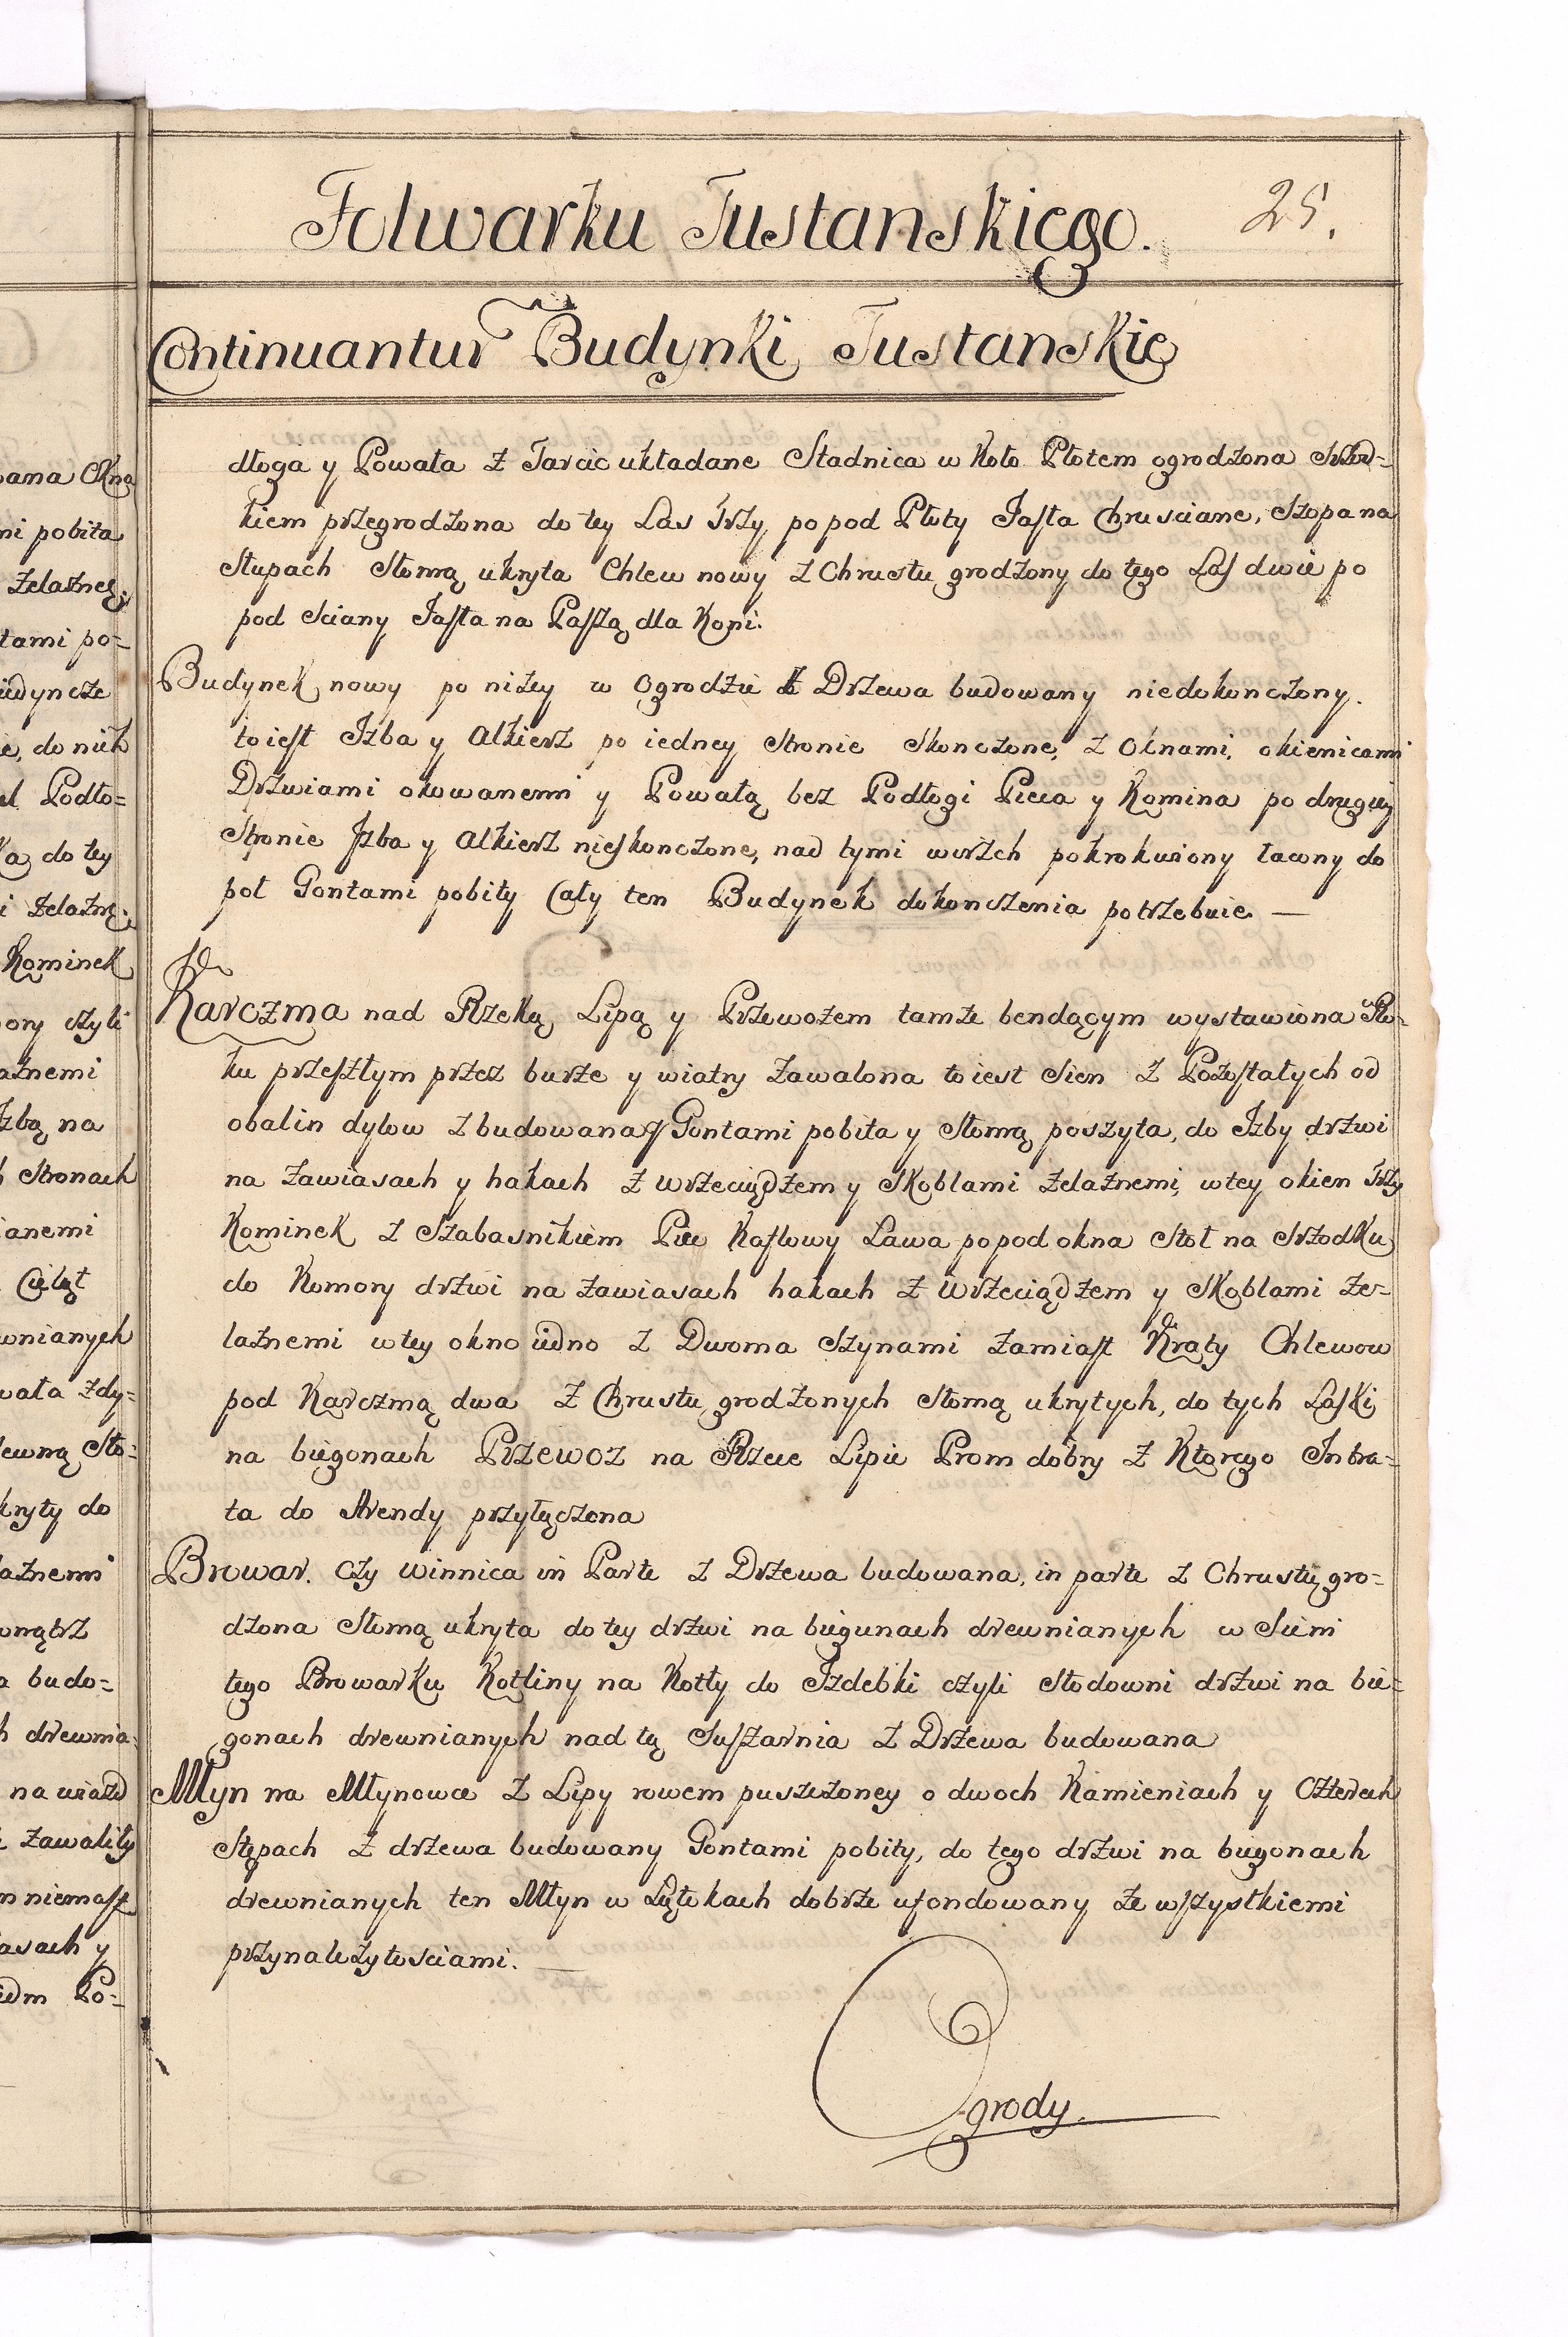 Folwarku Tustanskiego.
25.
Continuantur Budynki Tustanskie
dłoga y Powała z Tarcic układane Stadnica w koło Płotem ogrodzona Srzod=
kiem przegrodzona do tey Las trzy, popod Płoty Jasła Chrusciane, Szopa na
Słupach Słomą ukryta Chlew nowy z Chrustu grodzony do tego Las dwie po
pod Sciany Jasła na Paszą dla Koni.
Budynek nowy po niżey w Ogrodzie z Drzewa budowany niedokonczony.
to iest Izba y Alkierz po iedney Stronie Skonczone, z Oknami, okienicami
Drzwiami okowanemi y Powałą bez Podłogi Pieca y Komina po drugiey
Stronie Izba y Alkierz nieskonczone, nad tymi wirzch pokrokwiony łacony do
poł Gontami pobity Cały ten Budynek dokonczenia potrzebuie —
Karczma nad Rzeką Lipą y Przewozem tamże bendącym wystawiona Ro=
ku przeszłym przez burze y wiatry zawalona to iest Sien z Pozostałych od
obalin dylow zbudowana y Gontami pobita y Słomą poszyta, do Izby drzwi
na zawiasach y hakach z wrzeciądzem y Skoblami żelaznemi, wtey okien trzy
Kominek z Szabasnikiem Piec Kaflowy Ława popod okna Stoł na Srzodku
do Komory drzwi na zawiasach hakach z wrzeciądzem y Skoblami że=
laznemi wtey okno iedno z Dwoma Szynami zamiast Kraty Chlewow
pod Karczmą dwa z Chrustu grodzonych Słomą ukrytych, do tych Laski
na biegonach Przewoz na Rzece Lipie Prom dobry z Ktorego Intra=
ta do Arendy przyłączona
Browar. czy winnica in Parte z Drzewa budowana, in parte z Chrustu gro=
dzona Słomą ukryta do tey drzwi na biegunach drewnianych w Sieni
tego Browarku Kotliny na Kotły do Izdebki czyli Słodowni drzwi na bie=
gonach drewnianych nad tą Suszarnia z Drzewa budowana
Młyn na Młynowce z Lipy rowem puszczoney o dwoch Kamieniach y Czterech
Stępach z drzewa budowany Gontami pobity, do tego drzwi na biegonach
drewnianych ten Młyn w Lątokach dobrze ufondowany ze wszystkiemi
przynależytosciami. —
Ogrody.
ama Okna
mi pobita
żelazney
tami po=
iedyncze
e, do nich
Podło=
do tey
i żelazną
Kominek
ory czyli
aznemi
Izbą na
Stronach
ianemi
Cieląt
wnianych
wała zdy=
ewną Sło=
kryty do
laznemi
wnątrz
a budo=
h drewnia=
na wiazd
zawality
m niemasz
asach y
Po=